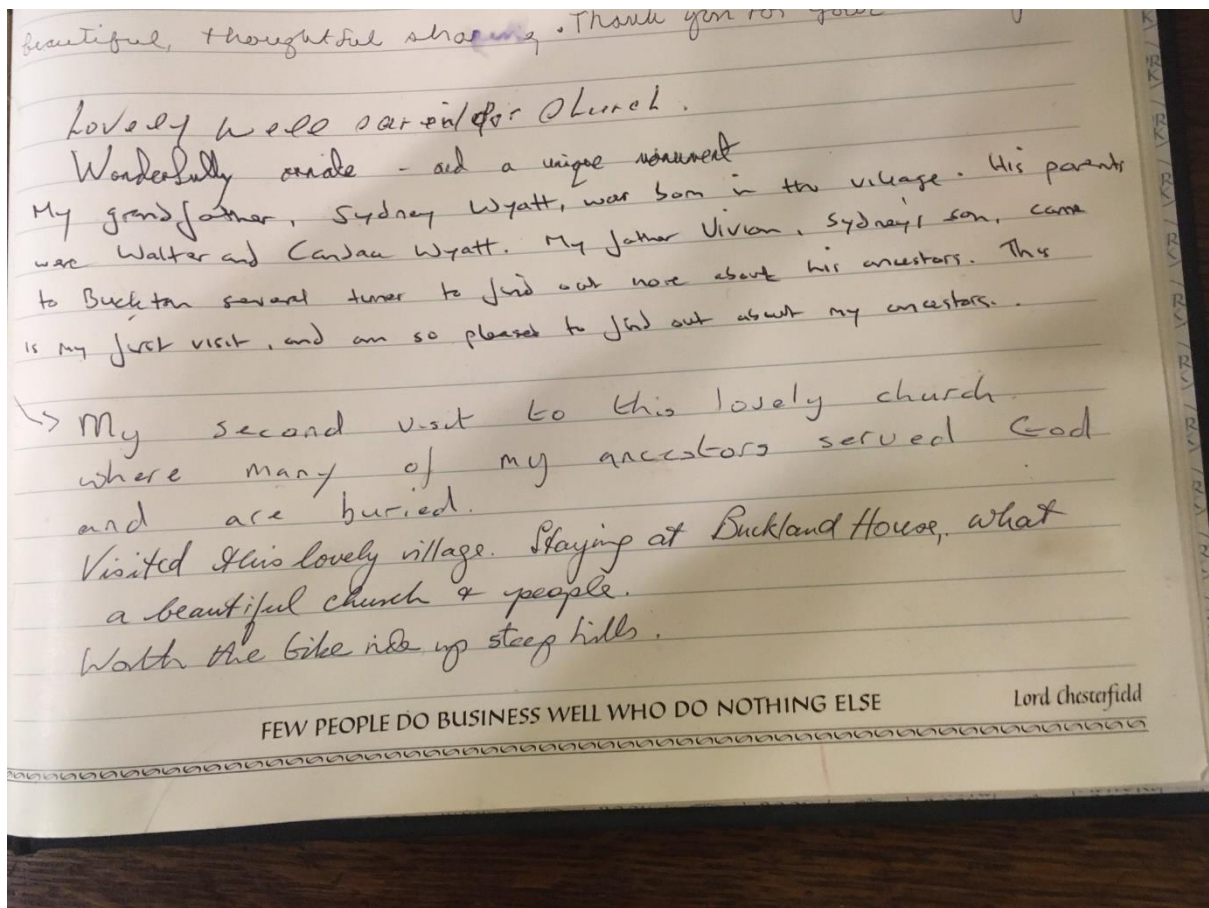 beautiful, thoughtful sharing. Thank you for your
Lovely well cared for Church.
Wonderfully ornate - and a unique monument
My grandfather, Sydney Wyatt, was born in the village. His parents
were Walter and Candace Wyatt. My father Vivian, Sydney's son, came
to Buckton several times to find out more about his ancestors. This
is my first visit, and am so pleased to find out about my ancestors..
↳ My second visit to this lovely church
where many of my ancestors served God
and are buried.
Visited this lovely village. Staying at Buckland House, what
a beautiful church & people.
Worth the bike ride up steep hills.
FEW PEOPLE DO BUSINESS WELL WHO DO NOTHING ELSE Lord Chesterfield